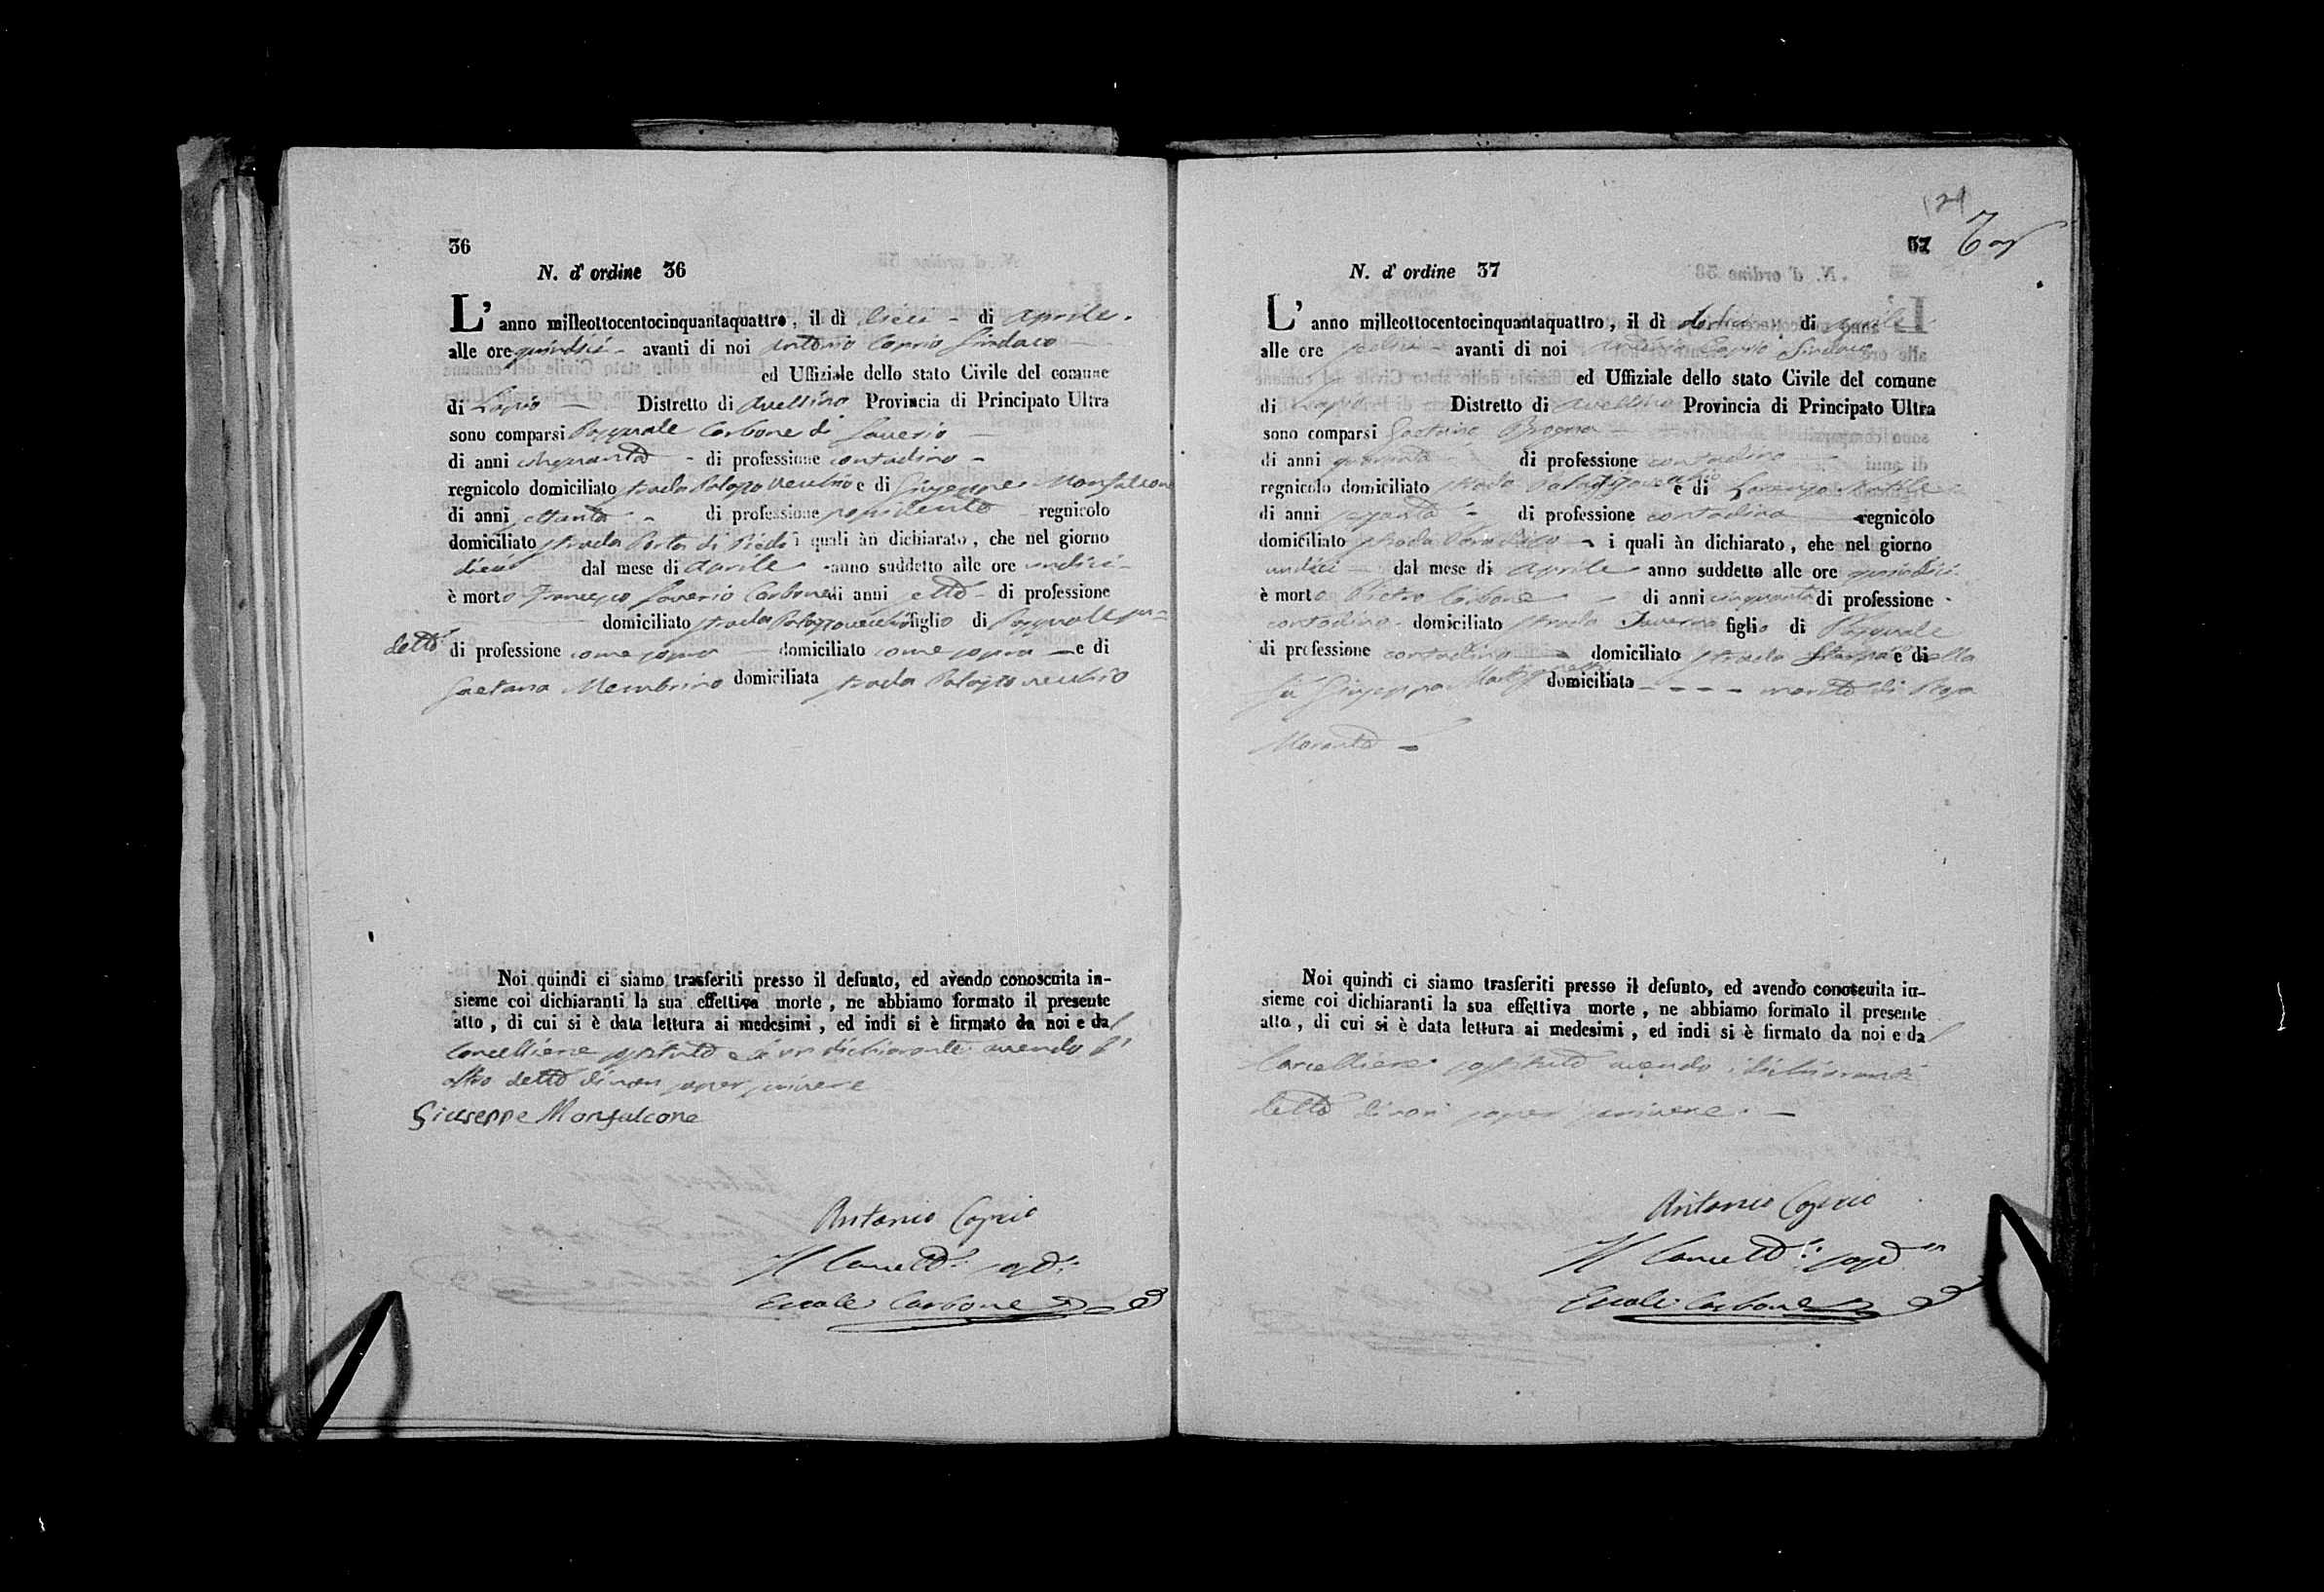 36
N. d' ordine 36
L' anno milleottocentocinquantaquattro, il dì dieci - di Aprile.
alle ore quindici - avanti di noi Antonio Caprio Sindaco —
ed Uffiziale dello stato Civile del comune
di Lapio — Distretto di Avellino Provincia di Principato Ultra
sono comparsi Pasquale Carbone di Saverio —
di anni cinquanta - di professione contadino -
regnicolo domiciliato strada Palazzo vecchio e di Giuseppe Monfalcone
di anni settanta - di professione possidente regnicolo
domiciliato strada Porta di Piedi i quali àn dichiarato, che nel giorno
dieci — dal mese di Aprile - anno suddetto alle ore undici -
è morto Francesco Saverio Carbone di anni otto - di professione
domiciliato strada Palazzo vecchio figlio di Pasquale su=
detto di professione come sopra — domiciliato come sopra — e di
Gaetana Membrino domiciliata strada Palazzo vecchio
Noi quindi ci siamo trasferiti presso il defunto, ed avendo conosciuita in-
sieme coi dichiaranti la sua effettiva morte, ne abbiamo formato il presente
atto, di cui si è data lettura ai medesimi, ed indi si è firmato da noi e dal
Cancelliere sostituto e da un dichiarante avendo l'
altro detto di non saper scrivere
Giuseppe Monfalcone
Antonio Caprio
Il Cancell.e sost.
Ercole Carbone
37
N. d' ordine 37
L' anno milleottocentocinquantaquattro, il dì dodici di Aprile
alle ore avanti di noi Antonio Caprio Sindaco
ed Uffiziale dello stato Civile del comune
di Lapio Distretto di Avellino Provincia di Principato Ultra
sono comparsi Gaetano Brogna —
di anni di professione contadino —
regnicolo domiciliato strada Palazzo vecchio e di Lorenzo
di anni sessanta - di professione contadino regnicolo
domiciliato strada - i quali àn dichiarato, che nel giorno
undici — dal mese di Aprile anno suddetto alle ore quindici
è morto Pietro Carbone - di anni cinquanta di professione
contadino - domiciliato strada Taverna figlio di Pasquale
di professione contadino - domiciliato strada e di
fu Giuseppa domiciliata - - - - marito di Rosa
Morante —
Noi quindi ci siamo trasferiti presso il defunto, ed avendo conosciuita in-
sieme coi dichiaranti la sua effettiva morte, ne abbiamo formato il presente
atto, di cui si è data lettura ai medesimi, ed indi si è firmato da noi e dal
Cancelliere sostituto avendo i dichiaranti
detto di non saper scrivere. —
Antonio Caprio
Il Cancell.e sost.
Ercole Carbone